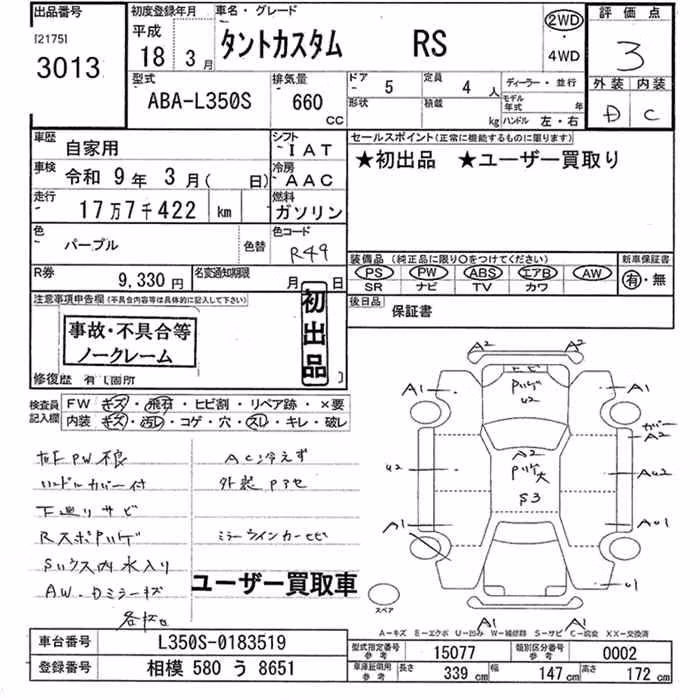 出品番号
[2175]
3013
初度登録年月
平成
18年3月
車名・グレード
タントカスタム RS
2WD
・
4WD
評価点
3
外装 内装
D C
型式
ABA-L350S
排気量
660 CC
ドア 5
形状
定員 4人
積載 kg
ディーラー・並行
モデル年式 年
ハンドル 左・右
車歴
自家用
シフト
IAT
車検
令和 9年 3月( 日)
冷房
AAC
走行
17万7千422 km
燃料
ガソリン
色
パープル
色替
色コード
R49
R券
9,330 円
名変通知期限
月 日
セールスポイント(正常に機能するものに限ります)
★初出品 ★ユーザー買取り
装備品 (純正品に限り○をつけてください)
PS PW ABS エアB AW
SR ナビ TV カワ
新車保証書
有・無
後日品
保証書
注意事項申告欄(不具合内容等は具体的に記入して下さい)
事故・不具合等
ノークレーム
初出品
修復歴 有(箇所 )
検査員
記入欄
FW キズ・飛石・ヒビ割・リペア跡・×要
内装 キズ・汚レ・コゲ・穴・スレ・キレ・破レ
PW不良
ハンドルカバー付
下廻りサビ
水入り
AW・Dミラーキズ
AC冷えず
ミラーウインカーヒビ
ユーザー買取車
A2 A2
U2
A1 A1
A2
A2
U2
S3
A1
U1
A1 A1
スペア
A-キズ E-エクボ U-凹み W-補修跡 S-サビ C-腐食 XX-交換済
車台番号
L350S-0183519
登録番号
相模 580 う 8651
型式指定番号
参考
15077
類別区分番号
参考
0002
車庫証明用
参考
長さ 339 cm
幅 147 cm
高さ 172 cm